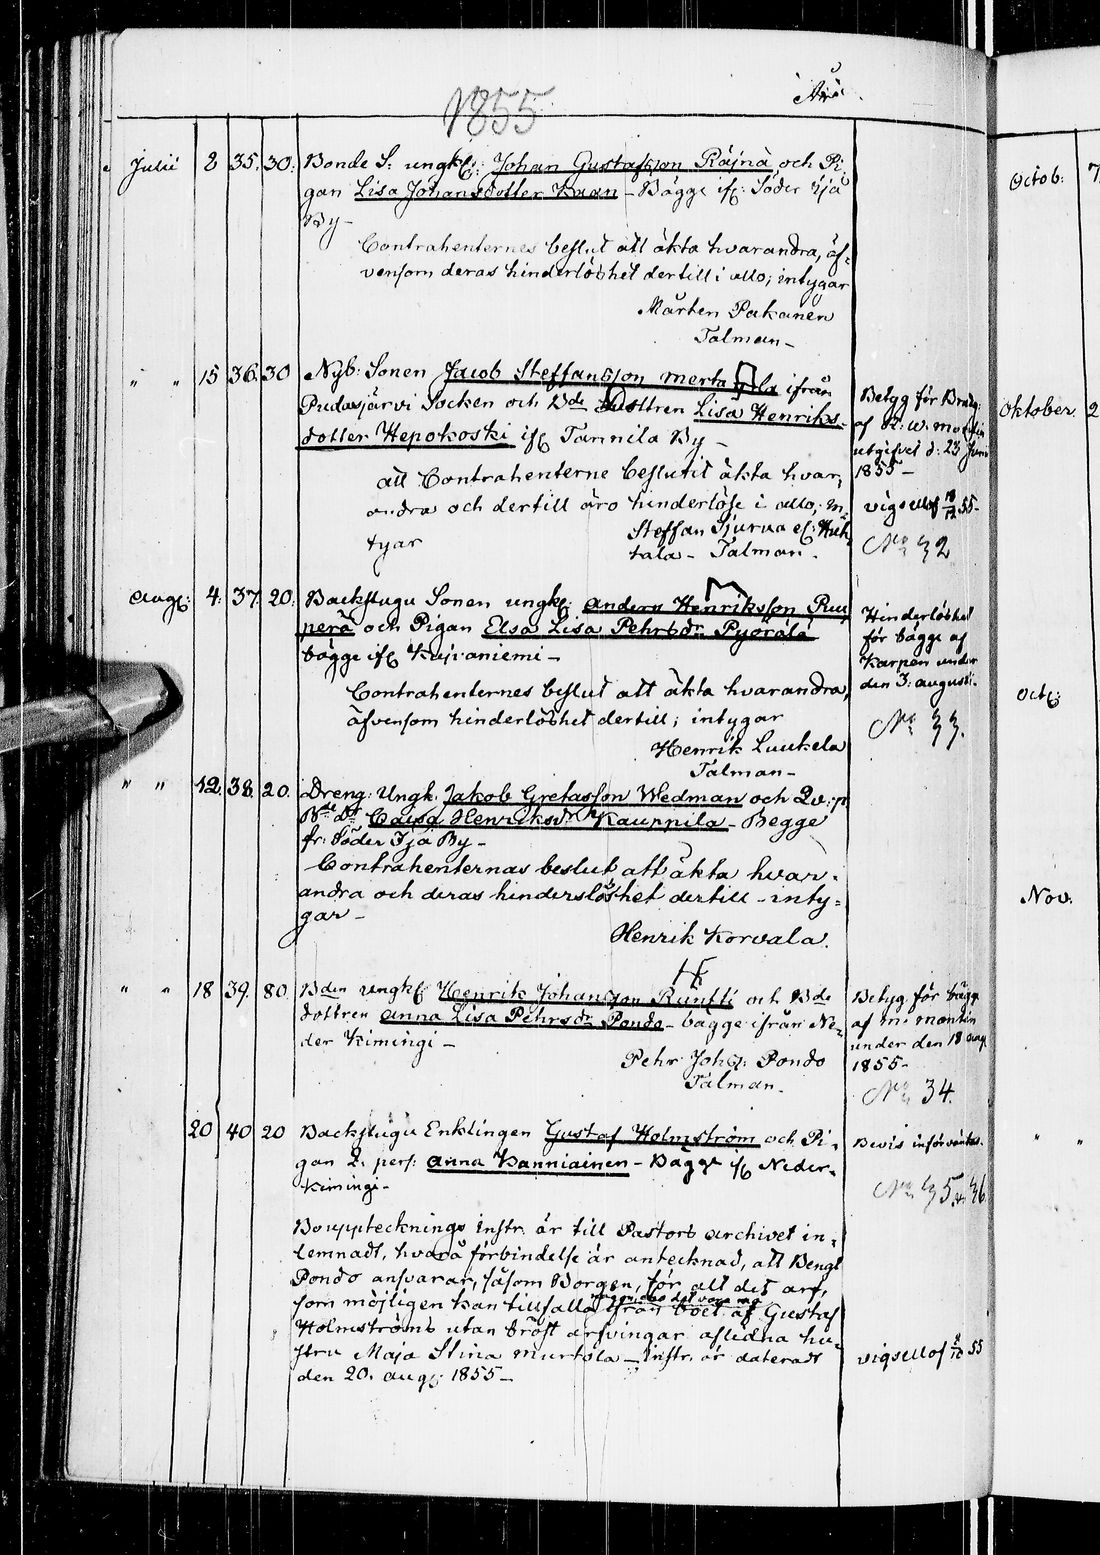 År
1855
Julii 8 35. 30. Bonde S: ungk: Johan Gustafsson Räjnä och Pi-
gan Lisa Johansdotter Kaan - Bägge if: Söder Ijå
By -
Contrahenternes beslut att äkta hvarandra, äf-
vensom deras hinderlöshet dertill i allo; intygar
Mårten Pakanen
Talman -
" " 15 36. 30 Nyb: Sonen Jacob Steffansson Merta la ifrån
Pudasjärvi Socken och Bde Dottren Lisa Henriks-
dotter Hepokoski if Tannila By -
att Contrahenterne beslutit äkta hvar-
andra och dertill äro hinderlöse i allo, in-
tyar
Steffan Sjurua ef: Huh-
tala - Talman.
Betyg för Brudg:
af K: W:
utgifvet d: 23 Juni
1855 -
vigs ell af 18/12 55 -
No 32
Aug: 4. 37. 20. Backstugu Sonen ungk: Anders Henriksson Ruu
perä och Pigan Elsa Lisa Pehrsdr Pyörälä
bägge if Kajvaniemi -
Contrahenternes beslut att äkta hvarandra,
äfvensom hinderlöshet dertill; intygar
Henrik Luukela
Talman -
Hinderlöshet
för bägge af
Karpen under
den 3: augusti.
No 33.
" " 12. 38. 20. Dreng: Ungk. Jakob Gretasson Wedman och Qv: p.
Bde Dr Caisa Henriksdr Kauppila - Begge
fr: Söder Ijå By -
Contrahenternas beslut att äkta hvar-
andra och deras hinderslöshet dertill - inty-
gar -
Henrik Korvala.
" " 18 39. 80. Bden ungk Henrik Johansson Runtti och Bde
dottren Anna Lisa Pehrsdr Pondo - bägge ifrån Ne-
der Kimingi -
Pehr Johs: Pondo
Talman.
Betyg för bägge
af M: Montin
under den 18 aug
1855 -
No 34.
20 40 20 Backstugu Enklingen Gustaf Holmström och Pi-
gan 2: pers: Anna Kanniainen - Bägge if Neder-
Kimingi -
Bevis införväntas.
No 35 & 36
Bouppteckningsinstr. är till Pastors archivet in-
lemnadt, hvarå förbindelse är antecknad, att Bengt
Pondo ansvarar, såsom Borgen, för allt det arf,
det vara må
som möjligen kan tillfalla ifrån boet af Gustaf
Holmströms utan bröst arfvingar aflidna hu-
stru Maja Stina Murtola - Instr. är dateradt
den 20. aug: 1855 -
vigs ell af 8/10 55
Octob: 7
Oktober. 2
Oct:
Nov.
" "